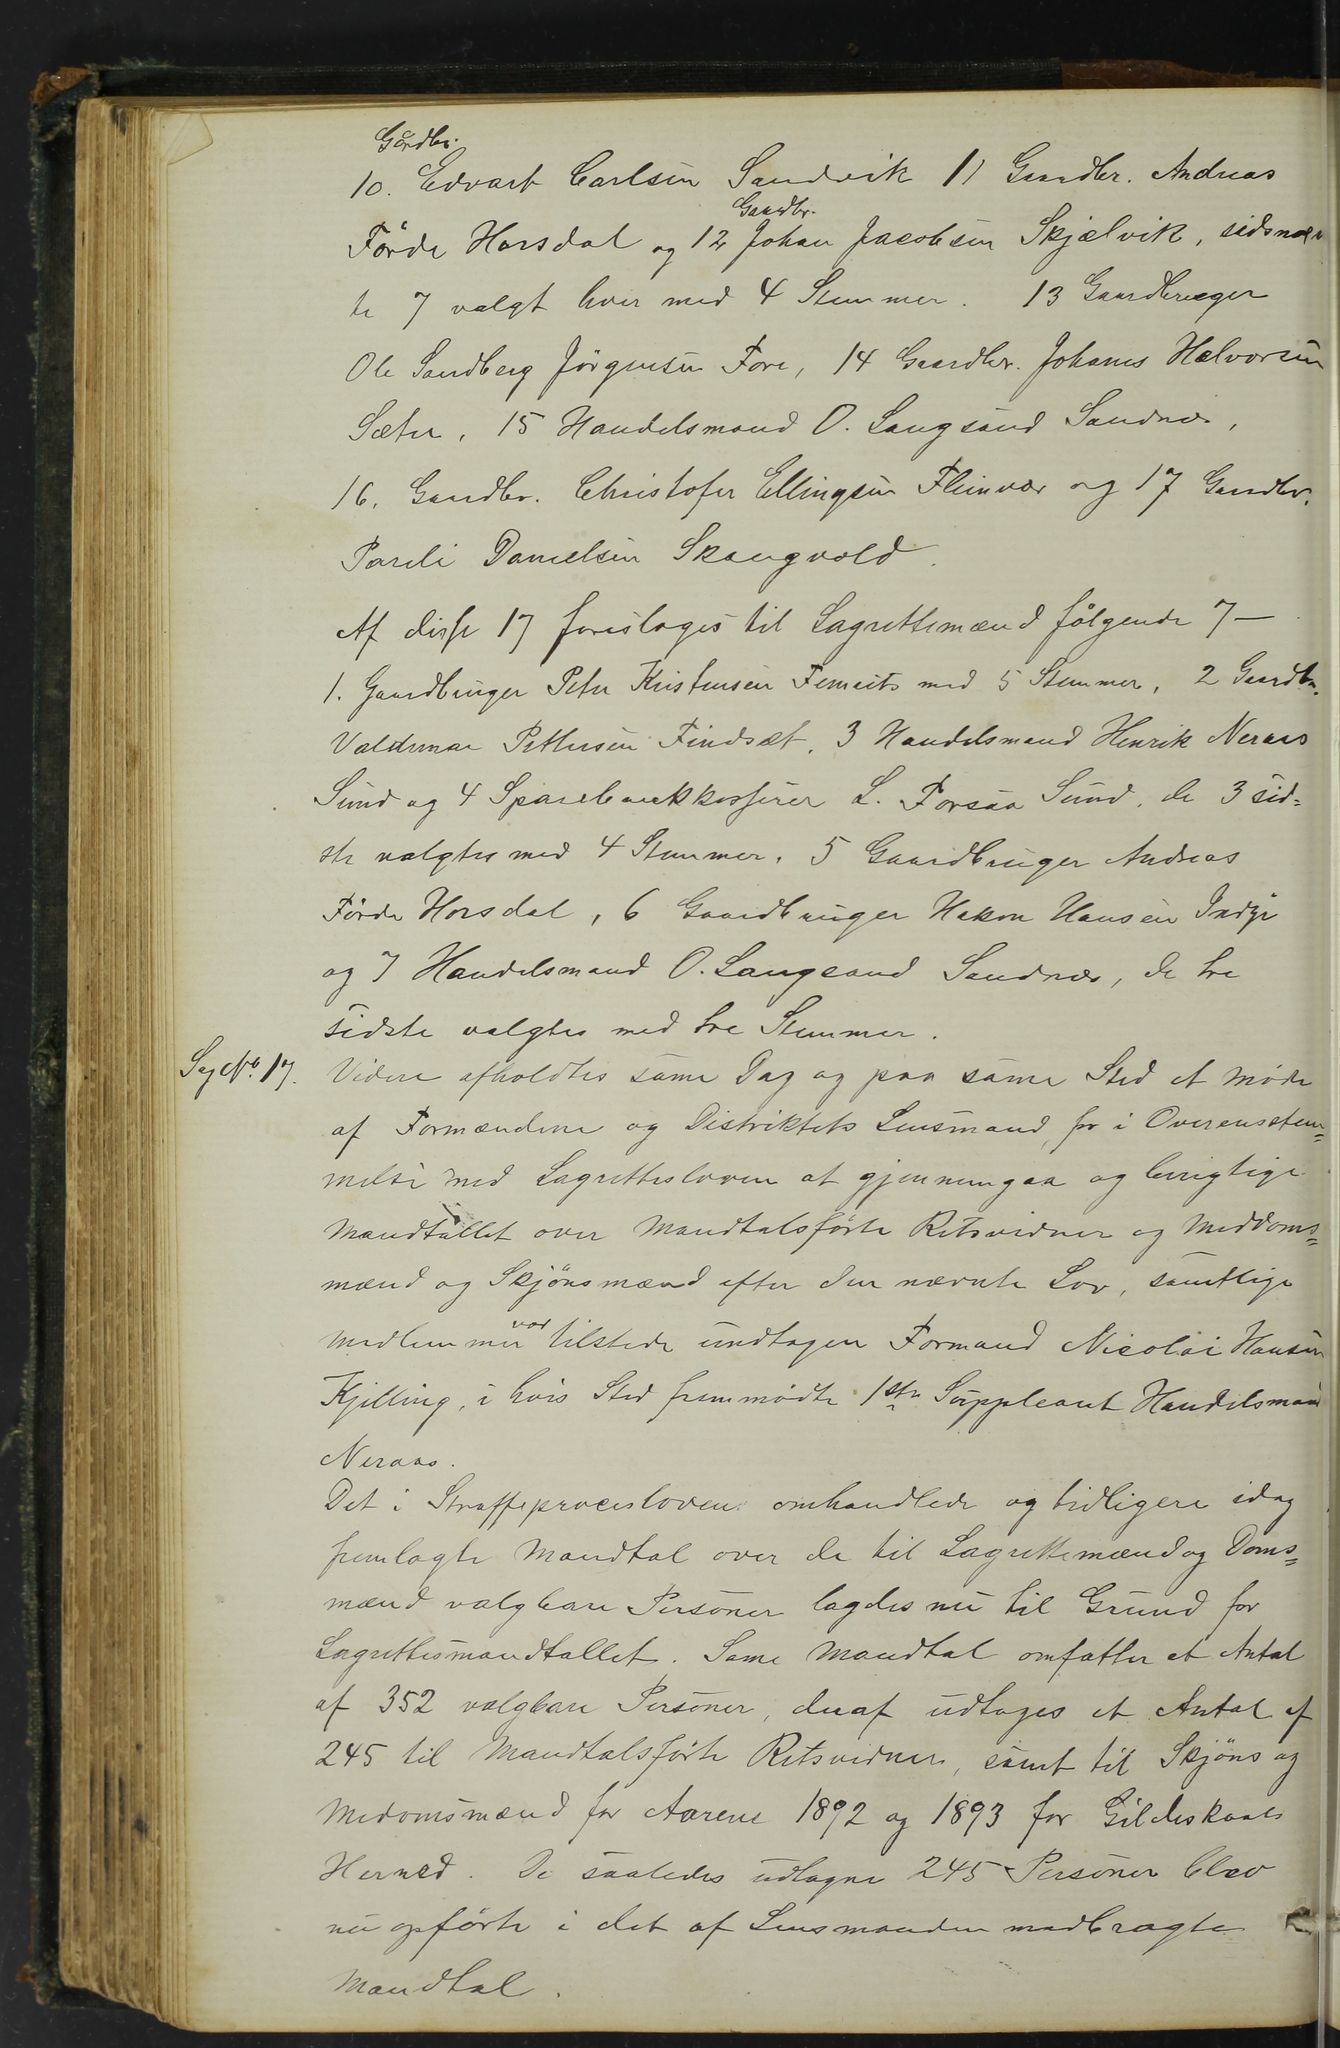 Gårdbr.
10. Edvart Carlsen Sandvik 11 Gaardbr. Andreas
Gaardbr.
Förde Horsdal og 12 Johan Jacobsen Skjælvik, sidsnævn
te 7 valgt hver med 4 Stemmer. 13 Gaardbruger
Ole Sandberg Jörgensen Fore, 14 Gaardbr. Johanes Halvorsen
Sæter, 15 Handelsmand O. Langsand Sandnes,
16. Gaardbr. Christofer Ellingsen Fleinvær og 17 Gaardbr.
Pareli Danielsen Skaugvold.
Af disse 17 foresloges til Lagrettemænd fölgende 7 —
1. Gaardbruger Peter Kristensen Femris med 5 Stemmer, 2 Gaardbr.
Valdemar Pettersen Findsæt, 3 Handelsmand Henrik Neraas
Sund og 4 Sparebankkasserer L. Forsaa Sund, de 3 sid=
ste valgtes med 4 Stemmer. 5 Gaardbruger Andreas
Förde Horsdal, 6 Gaardbruger Hakon Hansen Indyr
og 7 Handelsmand O. Langsand Sandnes, de tre
sidste valgtes med tre Stemmer.
Sag No. 17. Videre afholdtes same Dag og paa same Sted et møde
af Formændene og Distriktets Lensmand, for i Overensstem=
melse med Lagrettesloven at gjennemgaa og berigtige
Mandtallet over Mandtalsförte Retsvidner og Meddoms=
mænd og Skjönsmænd efter den nævnte Lov, samtlige
var
medlemmer tilstede undtagen Formand Nicolai Hansen
Kjelling, i hvis Sted fremmødte 1ste Suppleant Handelsmand
Neraas.
Det i Straffeprocesloven omhandlede og tidligere idag
fremlagte Mandtal over de til Lagrettemænd og Doms=
mænd valgbare Personer lagdes nu til Grund for
Lagrettesmandtallet. Same Mandtal omfatter et Antal
af 352 valgbare Personer, deraf udtoges et Antal af
245 til Mandtalsförte Retsvidner, samt til Skjöns og
Medomsmænd for Aarene 1892 og 1893 for Gildeskaals
Herred. De saaledes udtagne 245 Personer blev
nu opförte i det af Lensmanden medbragte
Mandtal.